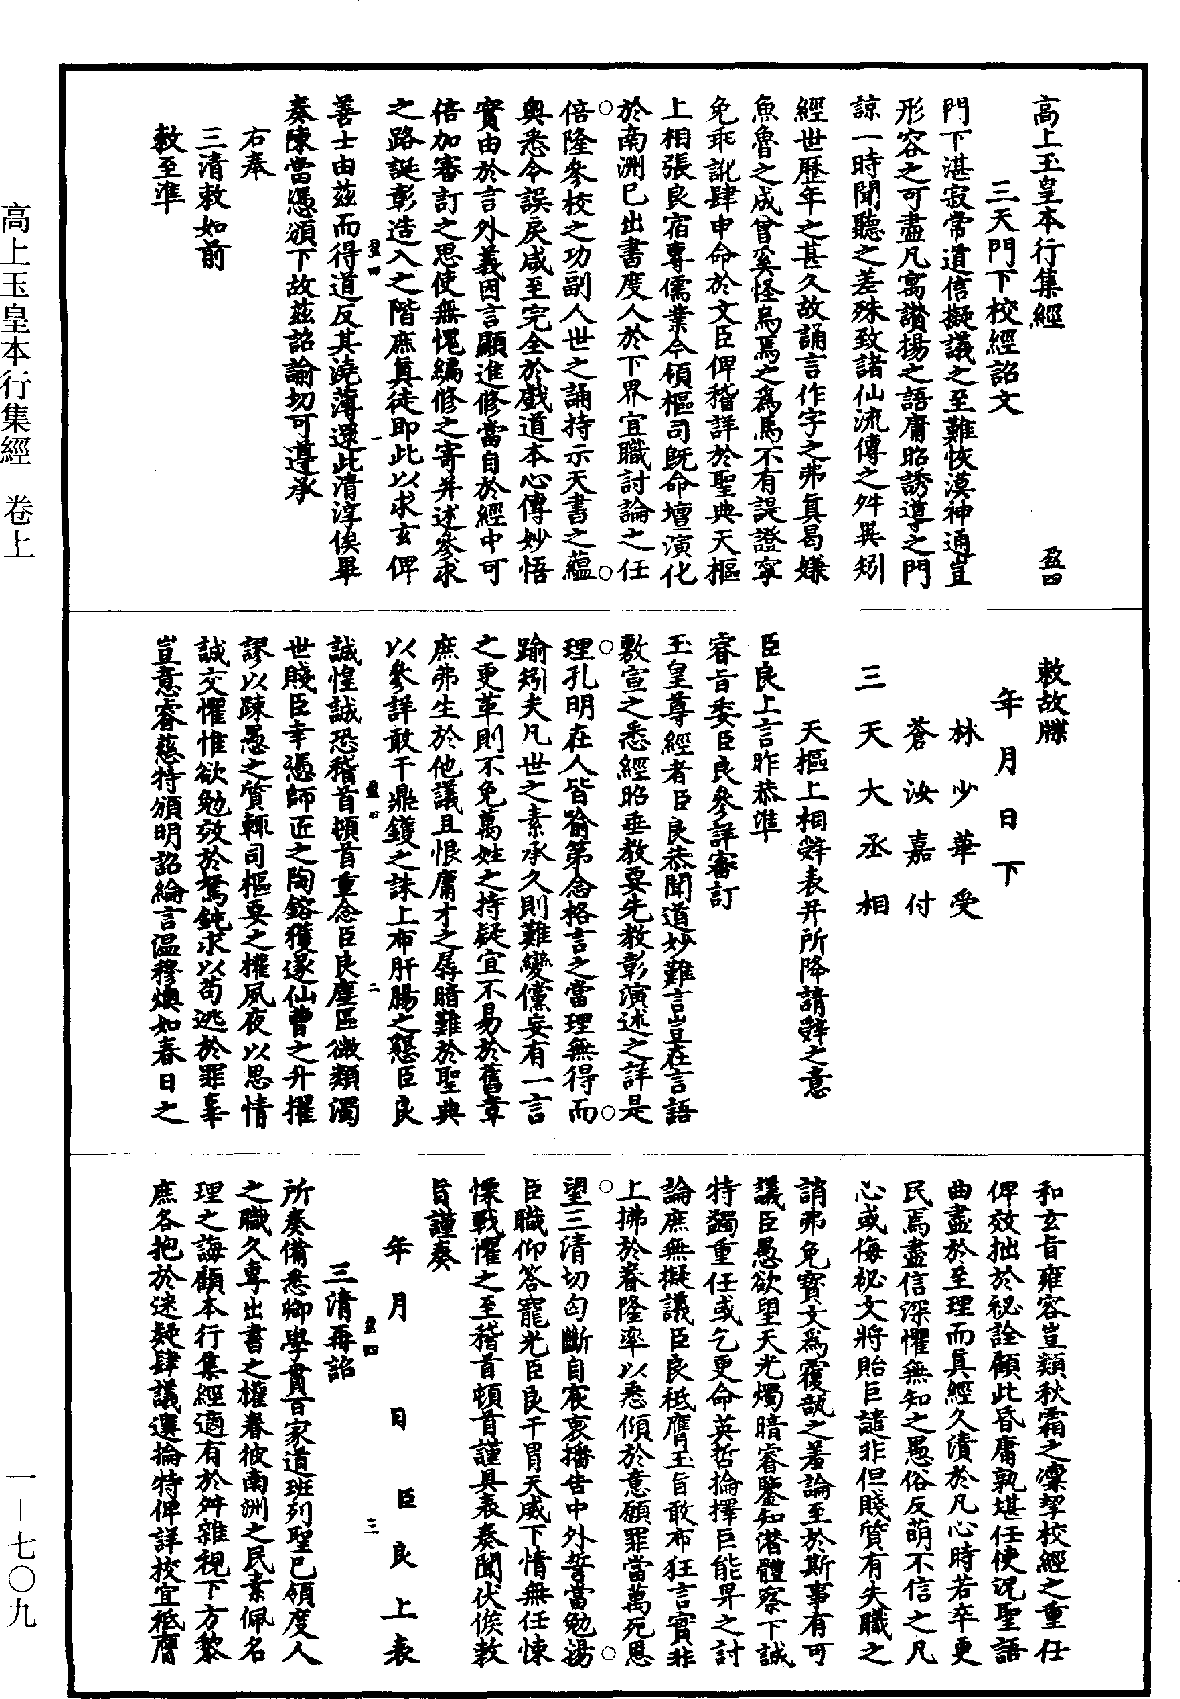 高上玉皇本行集經　盈四
三天門下校經詔文
門下湛寂常道信擬議之至難恢漠神通豈
形容之可盡凡寓讚揚之語庸昭誘導之門
諒一時聞聽之差殊致諸仙流傳之舛異矧
經世歷年之甚久故誦言作字之弗真曷嫌
魚魯之成曾奚怪烏焉之為馬不有諟證寧
免乖訛肆申命於文臣俾稽詳於聖典天樞
上相張良宿專儒業今領樞司既命壇演化
於南洲已出書度人於下界宜職討論之任
倍隆參校之功副人世之誦持示天書之蘊
奧悉令誤戾咸至完全於戲道本心傳妙悟
實由於言外義因言顯進修當自於經中可
倍加審訂之思使無愧編修之寄并述參求
之路誕彰造入之階庶真徒即此以求玄俾
善士由茲而得道反其澆薄還此清淳俟畢
奏陳當憑頒下故茲詔諭切可遵承
右奉
三清敕如前
敕至準
敕故牒
年月日下
林少華受
蒼汝嘉付
三天大丞相
天樞上相辭表并所降請辭之意
臣良上言昨恭準
睿旨委臣良參詳審訂
玉皇尊經者臣良恭聞道妙難言豈在言語
敷宣之悉經昭垂教要先教彰演述之詳是
理孔明在人皆喻第念格言之當理無得而
踰矧夫凡世之素承久則難變儻妄有一言
之更革則不免萬姓之持疑宜不易於舊章
庶弗生於他議且恨庸才之孱暗難於聖典
以參詳敢干鼎鑊之誅上布肝腸之懇臣良
誠惶誠恐稽首頓首重念臣良塵區微類濁
世賤臣幸憑師匠之陶鎔獲遂仙曹之升擢
謬以疎愚之質輒司樞要之權夙夜以思情
誠交懼惟欲勉效於駑鈍求以苟逃於罪辜
豈意睿慈特頒明詔綸言溫穆煥如春日之
和玄旨雍容豈類秋霜之凜挈校經之重任
俾效拙於祕詮顧此昏庸孰堪任使況聖語
曲盡於至理而真經久漬於凡心時若卒更
民焉盡信深懼無知之愚俗反萌不信之凡
心或侮祕文將貽巨譴非但賤質有失職之
誚弗免寶文為覆瓿之羞論至於斯事有可
議臣愚欲望天光燭暗睿鑒知潛體察下誠
持獨重任或乞更命英哲掄擇巨能畀之討
論庶無擬議臣良祗膺玉旨敢布狂言實非
上拂於眷隆率以悉傾於意願罪當萬死恩
望三清切匄斷自宸衷播告中外誓當勉揚
臣職仰答寵光臣良干冒天威下情無任悚
慄戰懼之至稽首頓首謹具表奏聞伏俟教
旨謹奏
年月　日　臣良上表
三清再詔
所奏備悉卿學貫百家道班列聖已領度人
之職久專出書之權眷彼南洲之民素佩名
理之誨顧本行集經適有於舛雜視下方黎
庶各抱於迷疑肆議選掄特俾詳校宜祗膺
盈四　一
盈四　二
盈四　三
高上玉皇本行集經　卷上
一—七〇九